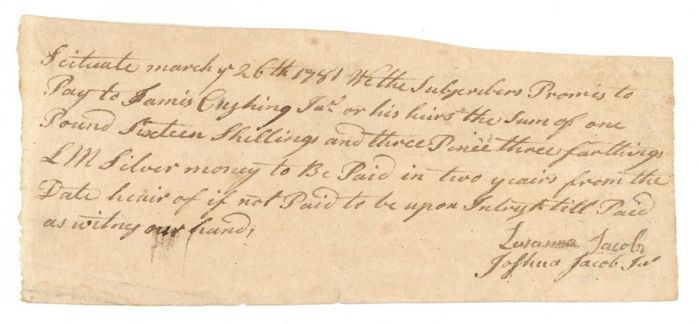 Scituate march ye 26th 1781 We the Subscribers Promis to
Pay to Jamis Cushing Junr or his heirs the Sum of one
Pound Sixteen Shillings and three Pinee three farthings
L M Silver money to Be Paid in two years from the
Date heair of if not Paid to be upon Intrust till Paid
as witnes our hands
Lusanna Jacob
Joshua Jacob Junr